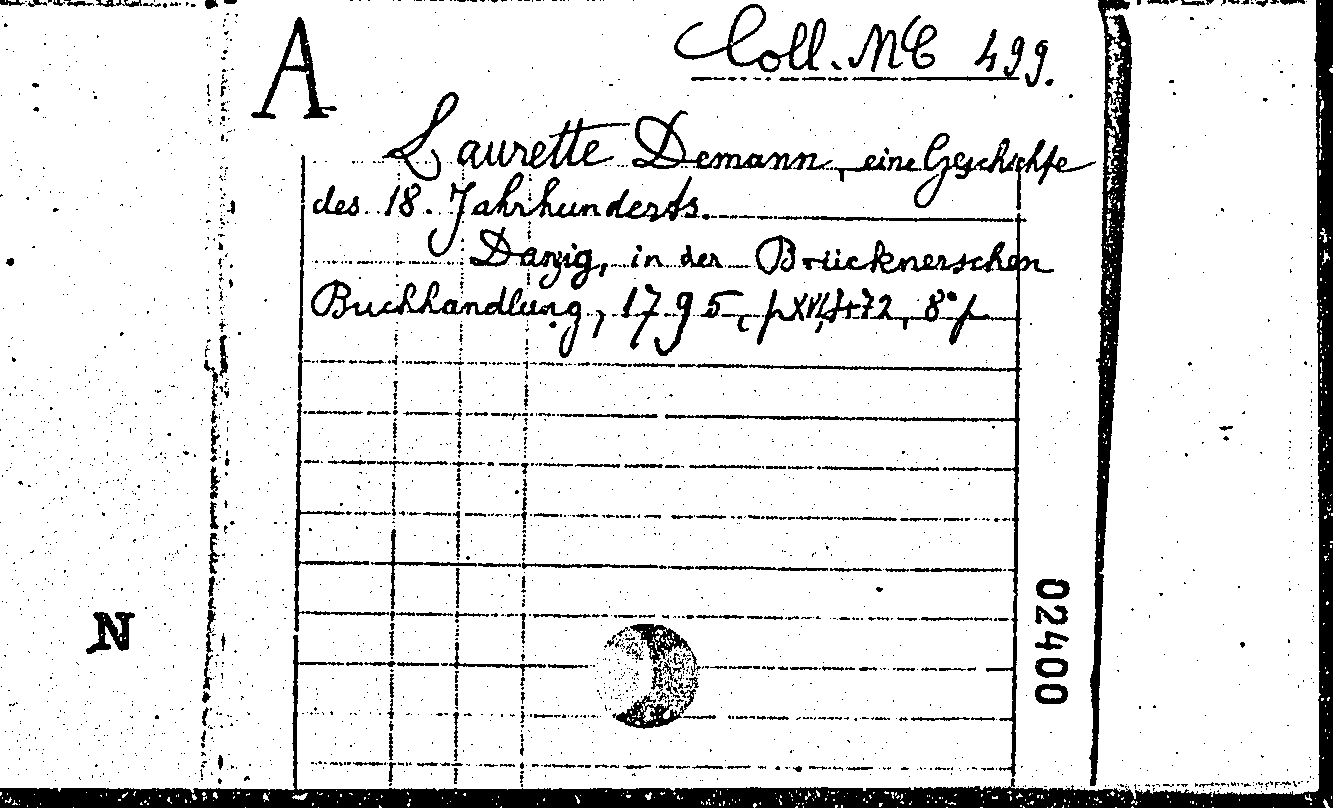 A
Coll. MC 499.
Laurette Demann, eine Geschichte
des 18. Jahrhunderts.
Danzig, in der Brücknerschen
Buchhandlung, 1795, 8°
N
02400